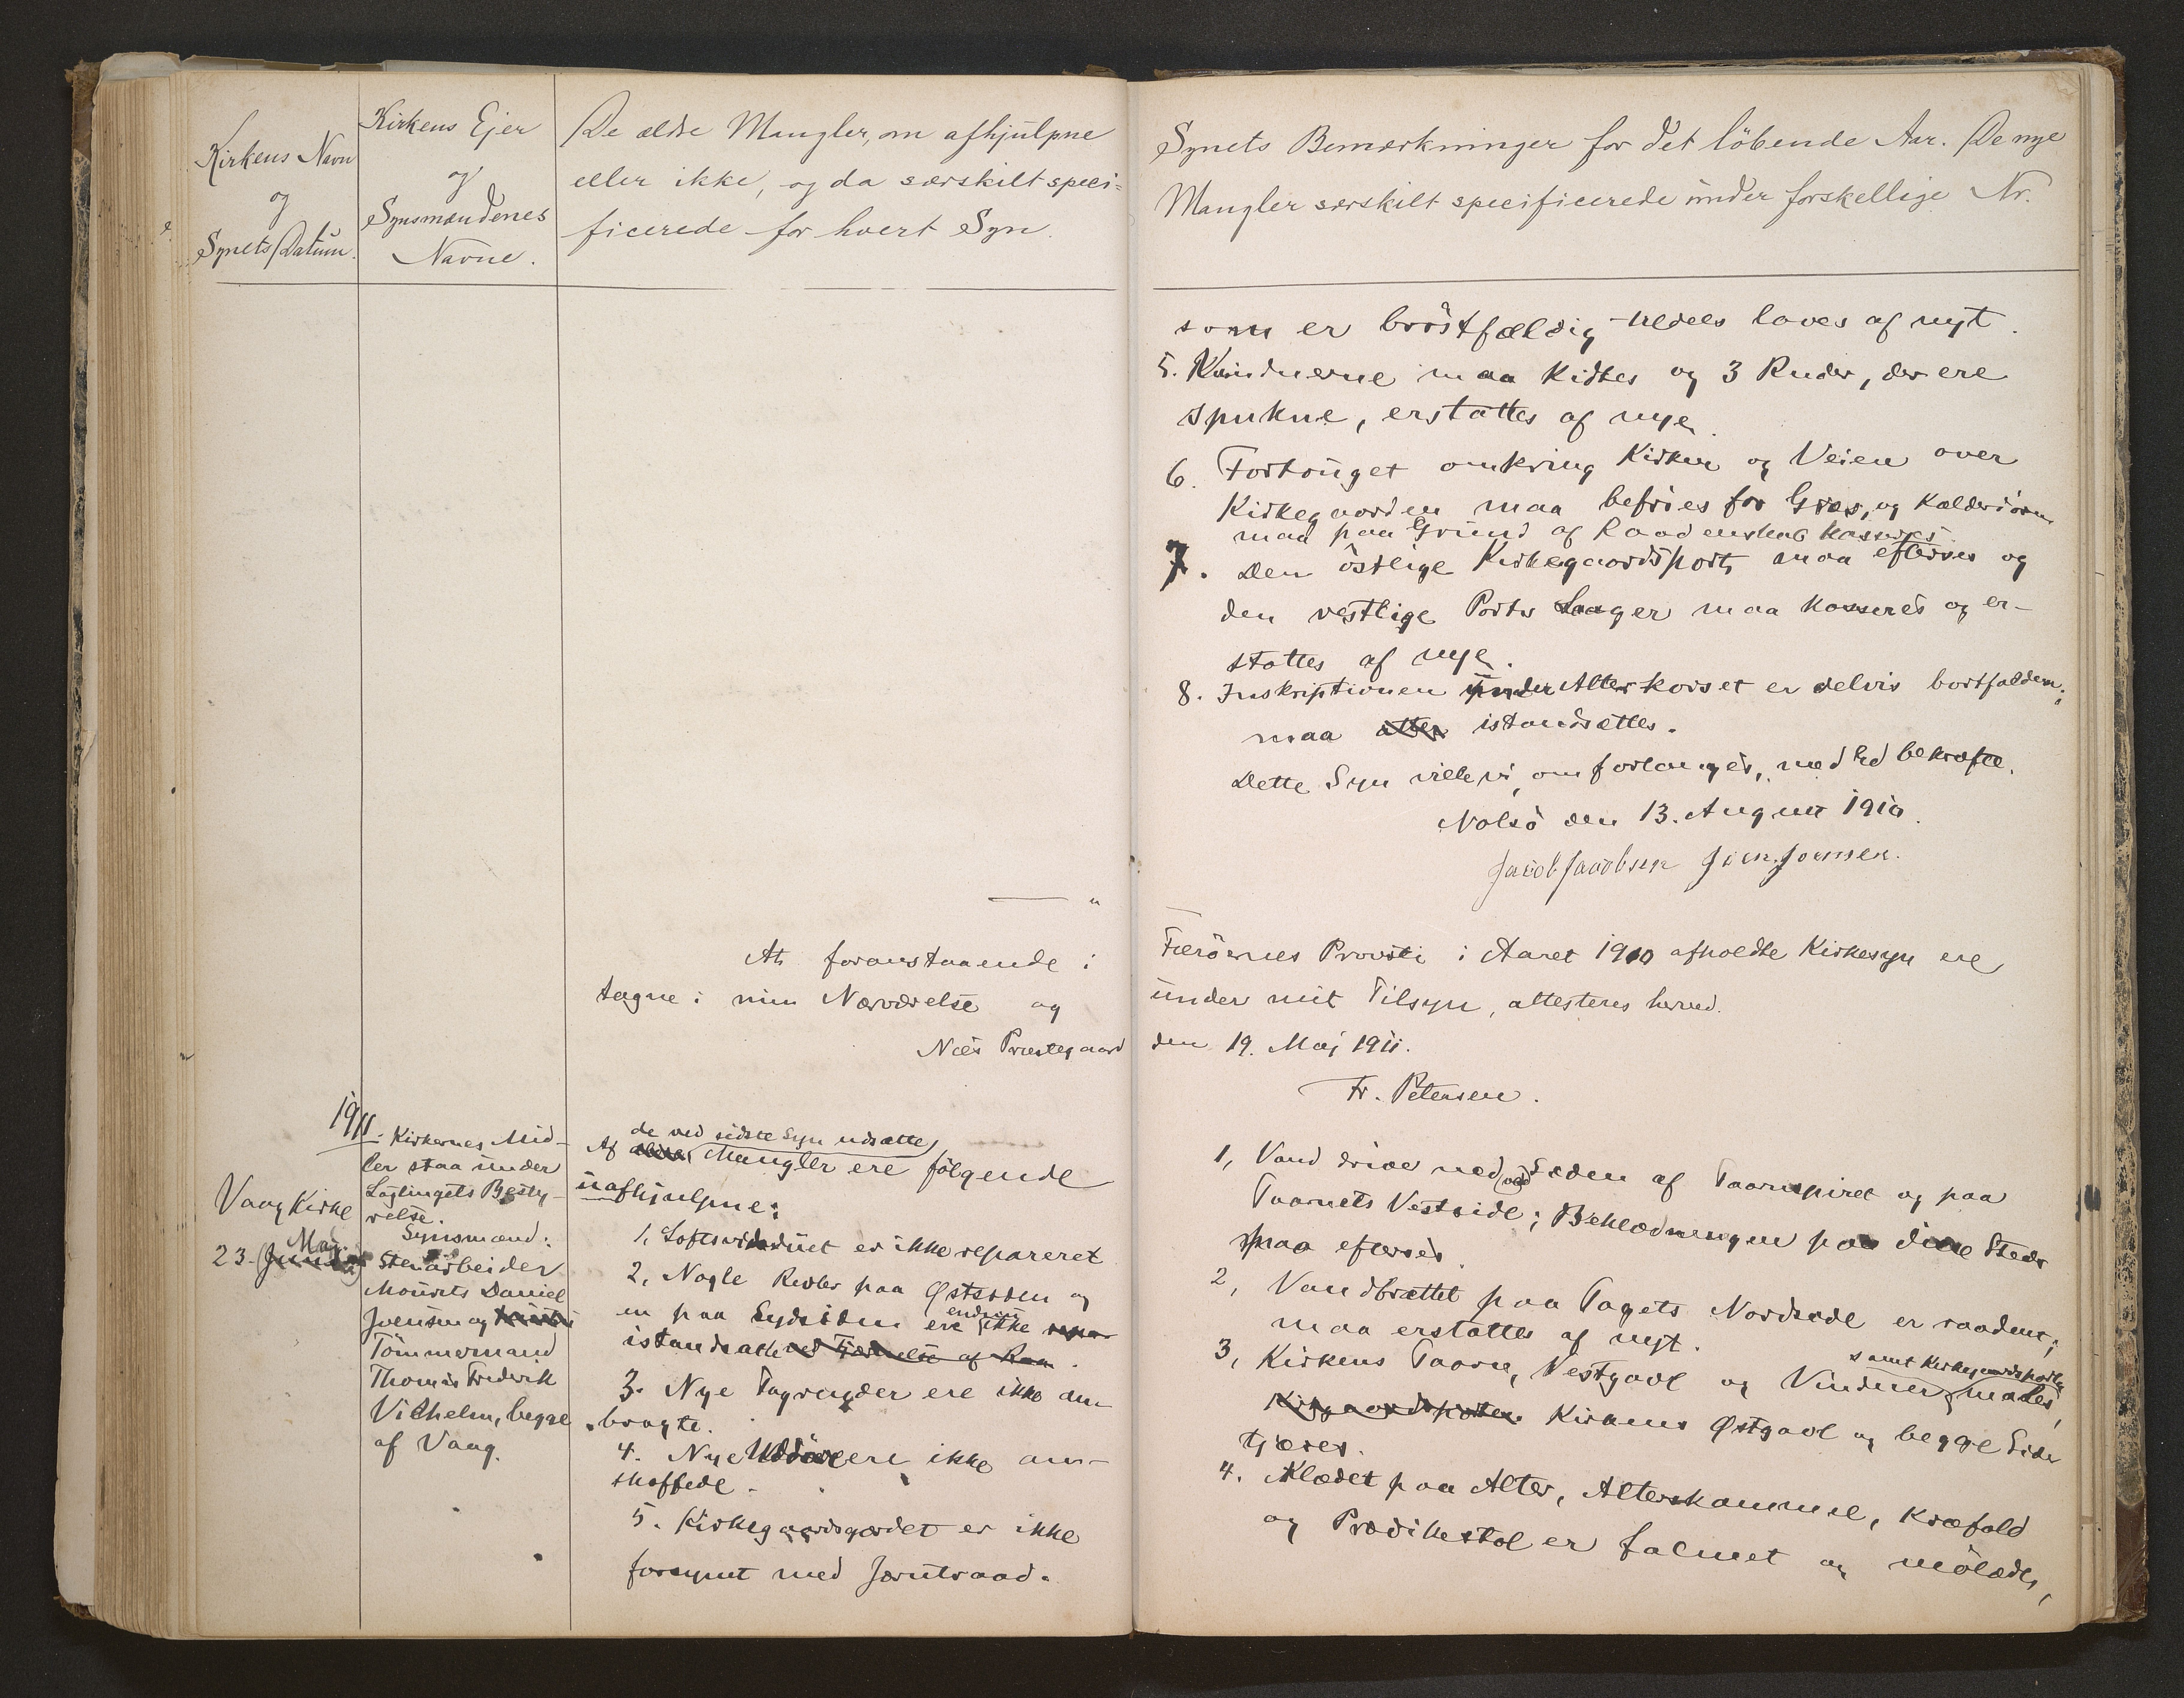 Kirkens Navn
og
Synets Datum.
Kirkens Ejer
og
Synsmændenes
Navne.
De ældre Mangler, om afhjulpne
eller ikke, og da særskilt speci-
ficerede for hvert Syn.
At foranstaaende i
tagne i min Nærværelse og
Næs Præstegaard
1911.
Vaag Kirke
23. Maj
Kirkernes Mid-
ler staa under
Lagtingets Besty-
relse.
Synsmænd:
Stenarbeider
Mourits Daniel
Joensen og
Tömmermand
Thomas Frederik
Vilhelm, begge
af Vaag.
de ved sidste Syn udsatte
Af Mangler ere fölgende
uafhjulpne:
1, Loftsvinduet er ikke repareret
2, Nogle Revler paa Østsiden og
en paa Sydsiden ere endnu ikke
istandsatte ved Fjernelse af Raa
3. Nye Tagrender ere ikke an-
bragte.
4. Nye Uddöre ere ikke an-
skaffede.
5. Kirkegaardsgærdet er ikke
forsynet med Jerntraad.
Synets Bemærkninger for det löbende Aar. De nye
Mangler særskilt specificerede under forskellige Nr.
som er bröstfældig laves af nyt.
5. Vinduerne maa kittes og 3 Ruder, der ere
spukne, erstattes af nye.
6. Fortouget omkring Kirken og Veien over
Kirkegaarden maa befries for Græs, og Kælderdören
maa paa Grund af Raaddenskab kasseres.
7. Den östlige Kirkegaardsport maa efterses og
den vestlige Ports Laager maa kasseres og er-
stattes af nye.
8. Inskriptionen under Alterkorset er delvis bortfalden;
maa atter istandsættes.
Dette Syn ville vi, om forlanges, med Ed bekræfte.
Nolsö den 13. August 1910.
Jacob Jacobsen Joen. Joensen.
Færöernes Provsti i Aaret 1910 afholdte Kirkesyn ere
under mit Tilsyn, attesteres herved.
den 19. Maj 1911.
Fr. Petersen.
1, Vand driver ned ved Siden af Taarnspiret og paa
Taarnets Vestside; Beklædningen paa disse Steder
maa efterses.
2, Vandbrættet paa Tagets Nordside er raadent;
maa erstattes af nyt.
3, Kirkens Taarn, Vestgavl og Vinduer samt Kirkegaardsporten males,
Kirkegaardsporten Kirkens Østgavl og begge Sider
tjæres.
4. Klædet paa Alter, Alterskammel, Knæfald
og Prædikestol er falmet og mölædt,